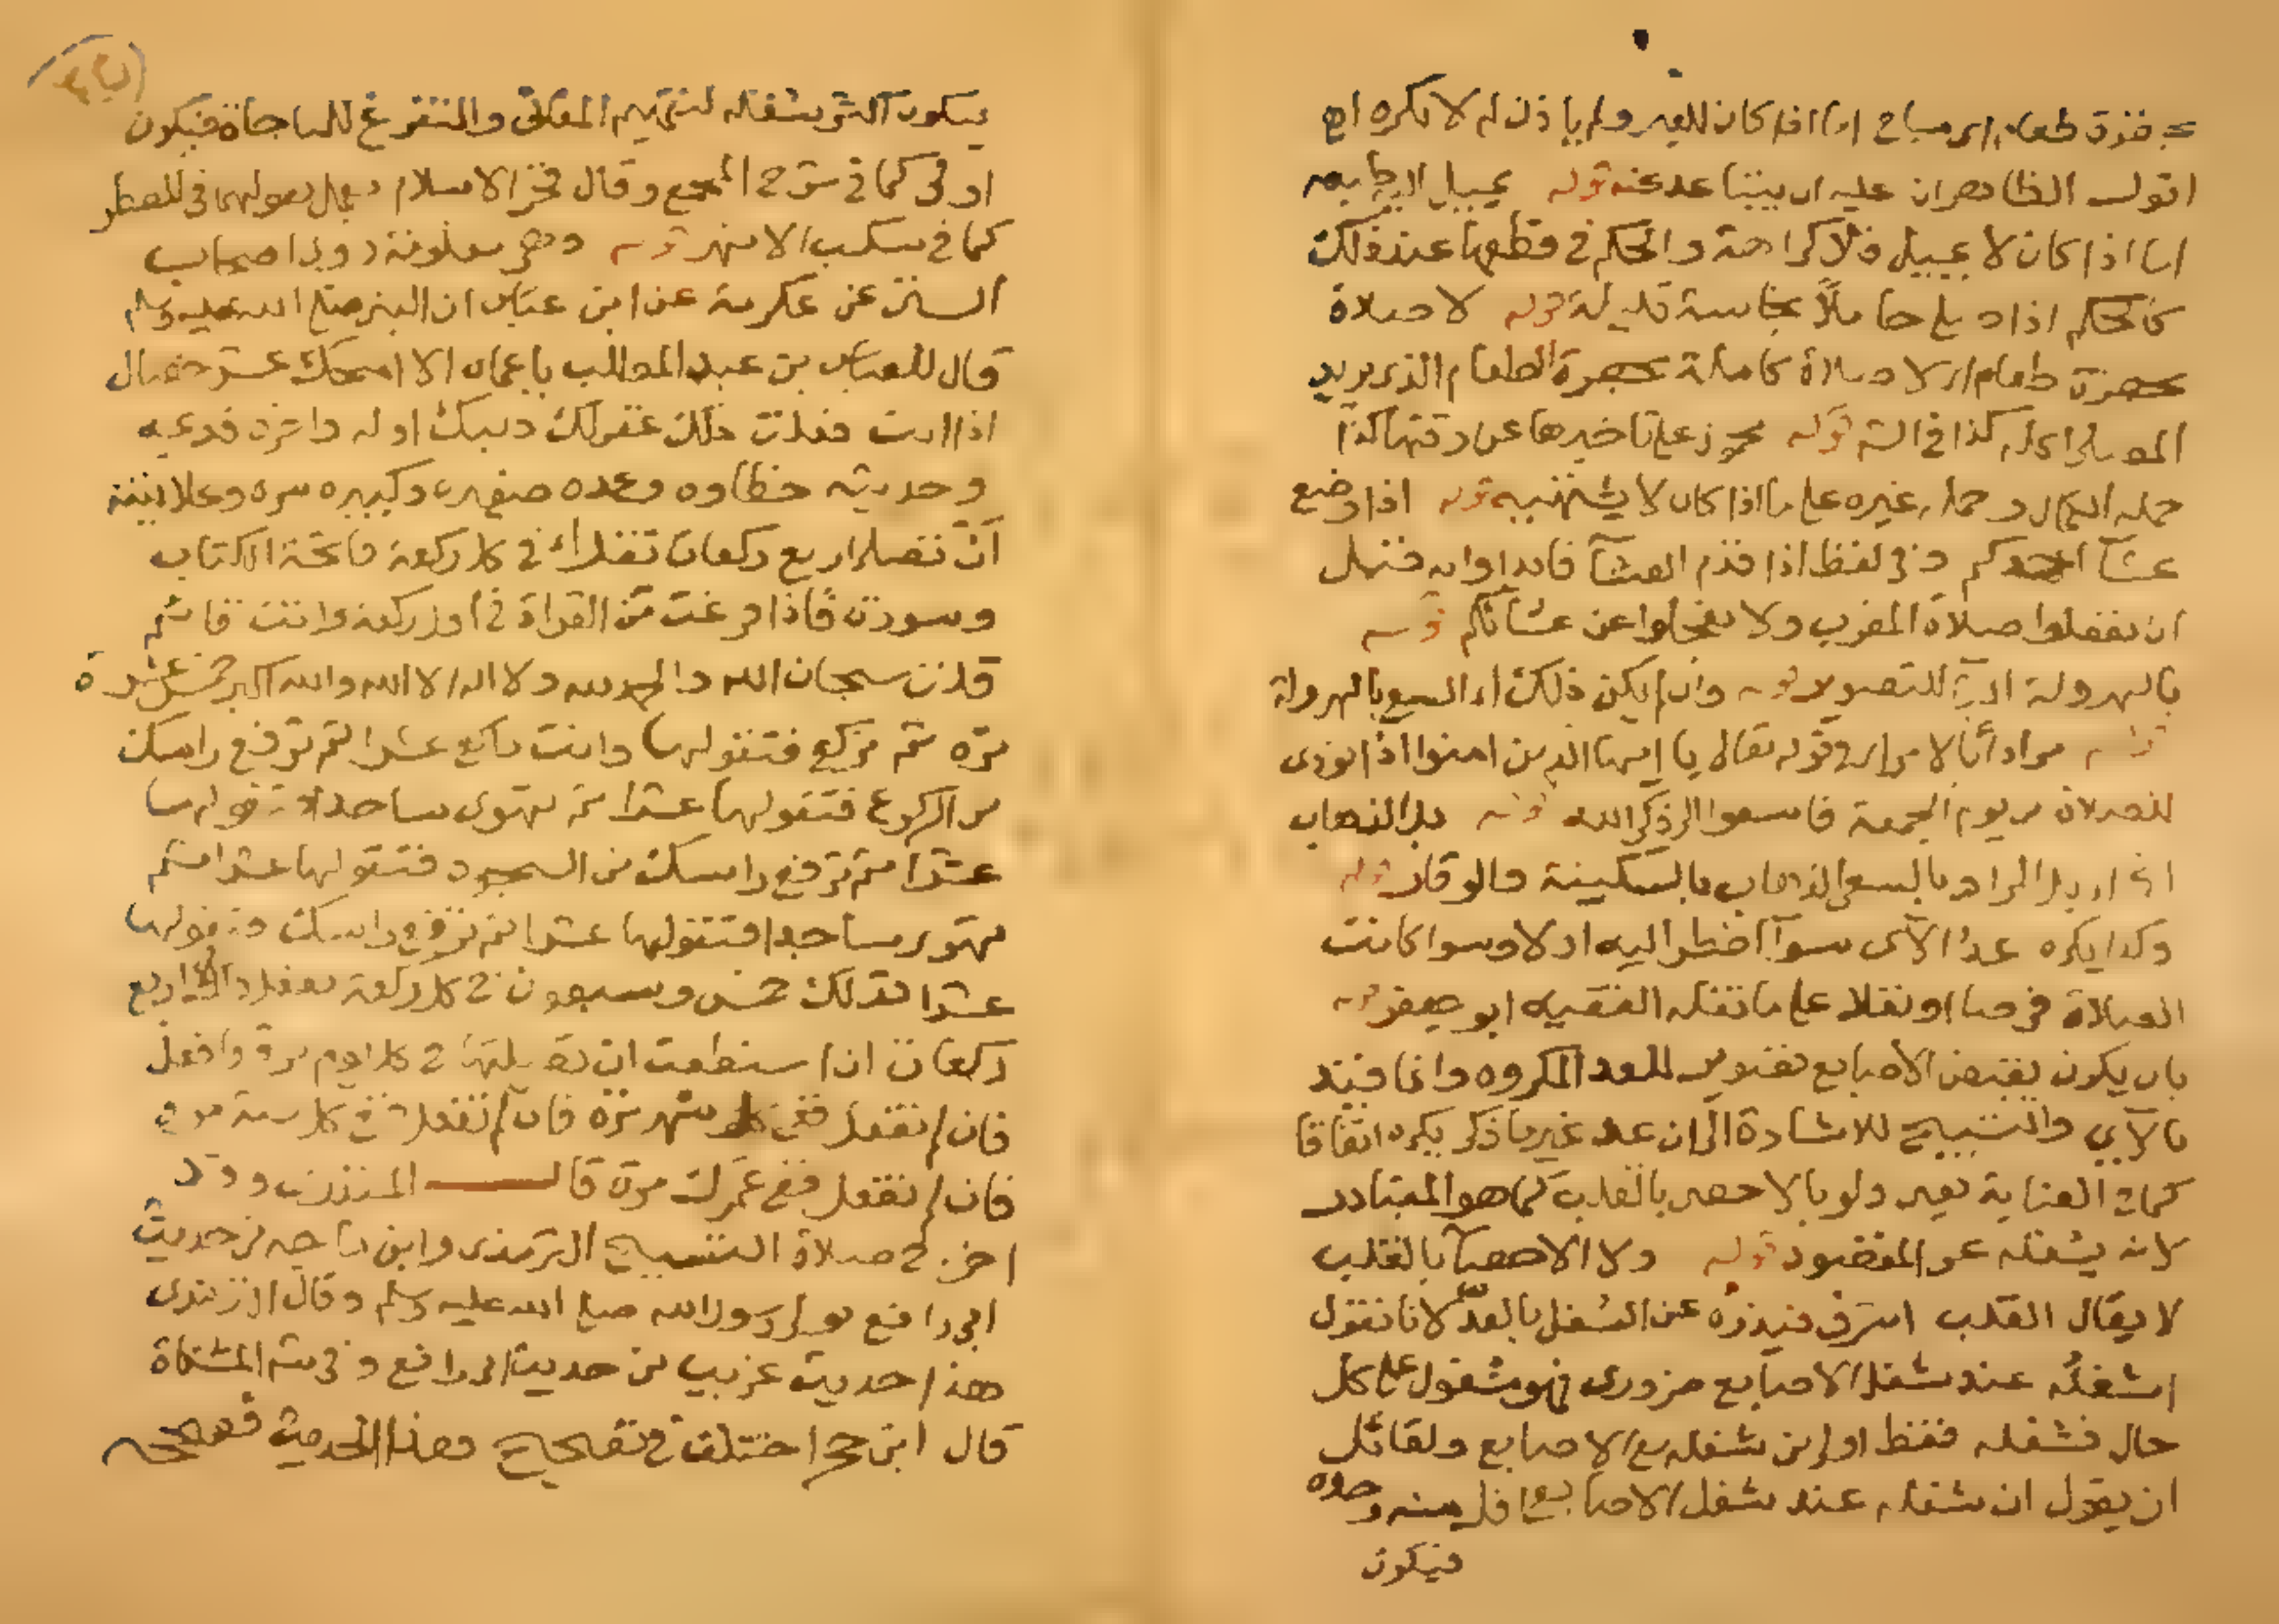 بحضرة طعام اي مباح اما اذا كان للغير ولم ياذن له لا يكره اهـ
اقول الظاهر ان عليه ان يبينا عدمه قوله يميل اليه طبعه
اما اذا كان لا يميل فلا كراهة والحكم في قطعها عند ذلك
كالحكم اذا صلى حاملاً نجاسة قليلة قوله لا صلاة
بحضرة طعام اي لا صلاة كاملة بحضرة الطعام الذي يريد
المصلي اكله كذا في الشـ قوله محمول على تاخيرها عن وقتها كذا
حمله الكمال وحمله غيره على ما اذا كان لا يشتهيه قوله اذا وضع
عشاء احدكم وفي لفظ اذا قدم العشاء فابداوا به قبل
ان تصلوا صلاة المغرب ولا تعجلوا عن عشائكم قوله
بالهرولة الباء للتصوير قوله وان لم يكن ذلك اي السعي بالهرولة
قوله مرادا بالامر اي وقوله تعالى يا ايها الذين امنوا اذا نودي
للصلاة من يوم الجمعة فاسعوا الى ذكر الله قوله بل الذهاب
اي بل المراد بالسعي الذهاب بالسكينة والوقار قوله
وكذا يكره عد الآي سواء اضطر اليه او لا وسوا كانت
الصلاة فرضا او نفلا على ما نقله الفقيه ابو جعفر قوله
بان يكون بقبض الاصابع تصوير للعد المكروه وانما قيد
بالآي والتسبيح للاشارة الى ان عد غيرها ذكر يكره اتفاقا
كما في العناية يعني ولو بالاحصر بالقلب كما هو المتبادر
لانه يشغله عن المقصود قوله ولا الاحصاء بالقلب
لا يقال القلب اشرف فينزه عن الشغل بالعد لانا نقول
اشغله عند شغل الاصابع ضروري فهو مشغول على كل
حال فشغله فقط اولى من شغله مع الاصابع ولقائل
ان يقول ان شغله عند شغل الاصابع اقل منه وحده
فيكون
يكون اكثر شغله لتتميم المعنى والتفرغ للمناجاة فيكون
اولى كما في شرح المجمع وقال فخر الاسلام يعمل بقولهما في المضطر
كما في سكب الانهر قوله وهي معلومة روى اصحاب
السنن عن عكرمة عن ابن عباس ان النبي صلى الله عليه وسلم
قال للعباس بن عبد المطلب يا عماه الا امنحك عشر خصال
اذا انت فعلت ذلك غفر لك ذنبك اوله واخره قديمه
وحديثه خطاوه وعمده صغيره وكبيره سره وعلانيته
ان تصلي اربع ركعات تقرا في كل ركعة فاتحة الكتاب
وسورة فاذا فرغت من القراة في اول ركعة وانت قائم
قلت سبحان الله والحمد لله ولا اله الا الله والله اكبر خمس عشرة
مرة ثم تركع فتقولها وانت راكع عشرا ثم ترفع راسك
من الركوع فتقولها عشرا ثم تهوى ساجدا فتقولها
عشرا ثم ترفع راسك من السجود فتقولها عشرا ثم
تهوى ساجدا فتقولها عشرا ثم ترفع راسك فتقولها
عشرا فذلك خمس وسبعون في كل ركعة تفعل ذلك في اربع
ركعات ان استطعت ان تصليها في كل يوم مرة فافعل
فان لم تفعل ففي كل شهر مرة فان لم تفعل ففي كل سنة مرة
فان لم تفعل ففي عمرك مرة قال المنذري وقد
اخرج صلاة التسبيح الترمذي وابن ماجه من حديث
ابي رافع مولى رسول الله صلى الله عليه وسلم وقال الترمذي
هذا حديث غريب من حديث ابي رافع وفي شـ المشكاة
قال ابن حجر اختلف في تصحيح هذا الحديث فصححه